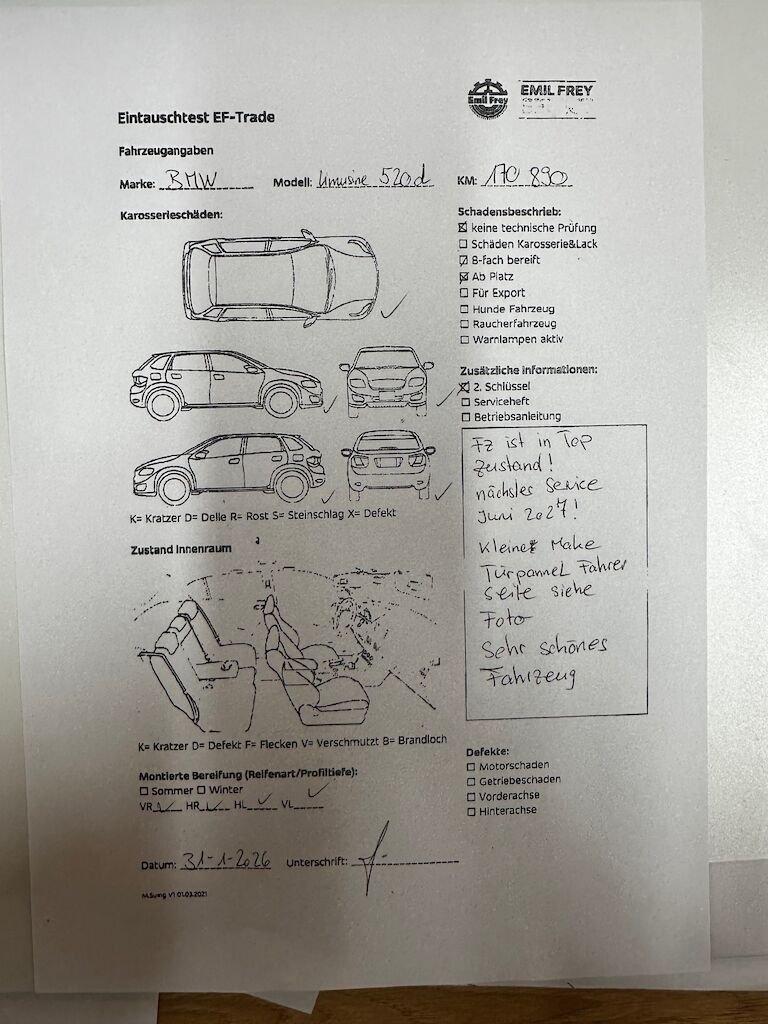 Emil Frey
EMIL FREY
Eintauschtest EF-Trade
Fahrzeugangaben
Marke: BMW Modell: Limusine 520d KM: 170 890
Karosserieschäden:
Schadensbeschrieb:
☒ keine technische Prüfung
☐ Schäden Karosserie&Lack
☒ 8-fach bereift
☒ Ab Platz
☐ Für Export
☐ Hunde Fahrzeug
☐ Raucherfahrzeug
☐ Warnlampen aktiv
Zusätzliche Informationen:
☒ 2. Schlüssel
☐ Serviceheft
☐ Betriebsanleitung
Fz ist in Top
Zustand!
nächster Service
Juni 2027!
Kleiner Make
Türpannel Fahrer
seite siehe
Foto
Sehr schönes
Fahrzeug
K= Kratzer D= Delle R= Rost S= Steinschlag X= Defekt
Zustand Innenraum
K= Kratzer D= Defekt F= Flecken V= Verschmutzt B= Brandloch
Montierte Bereifung (Reifenart/Profiltiefe):
☐ Sommer ☐ Winter ✓
VR ✓ HR ✓ HL ✓ VL
Defekte:
☐ Motorschaden
☐ Getriebeschaden
☐ Vorderachse
☐ Hinterachse
Datum: 31-1-2026 Unterschrift:
M.Suing V1 01.03.2021